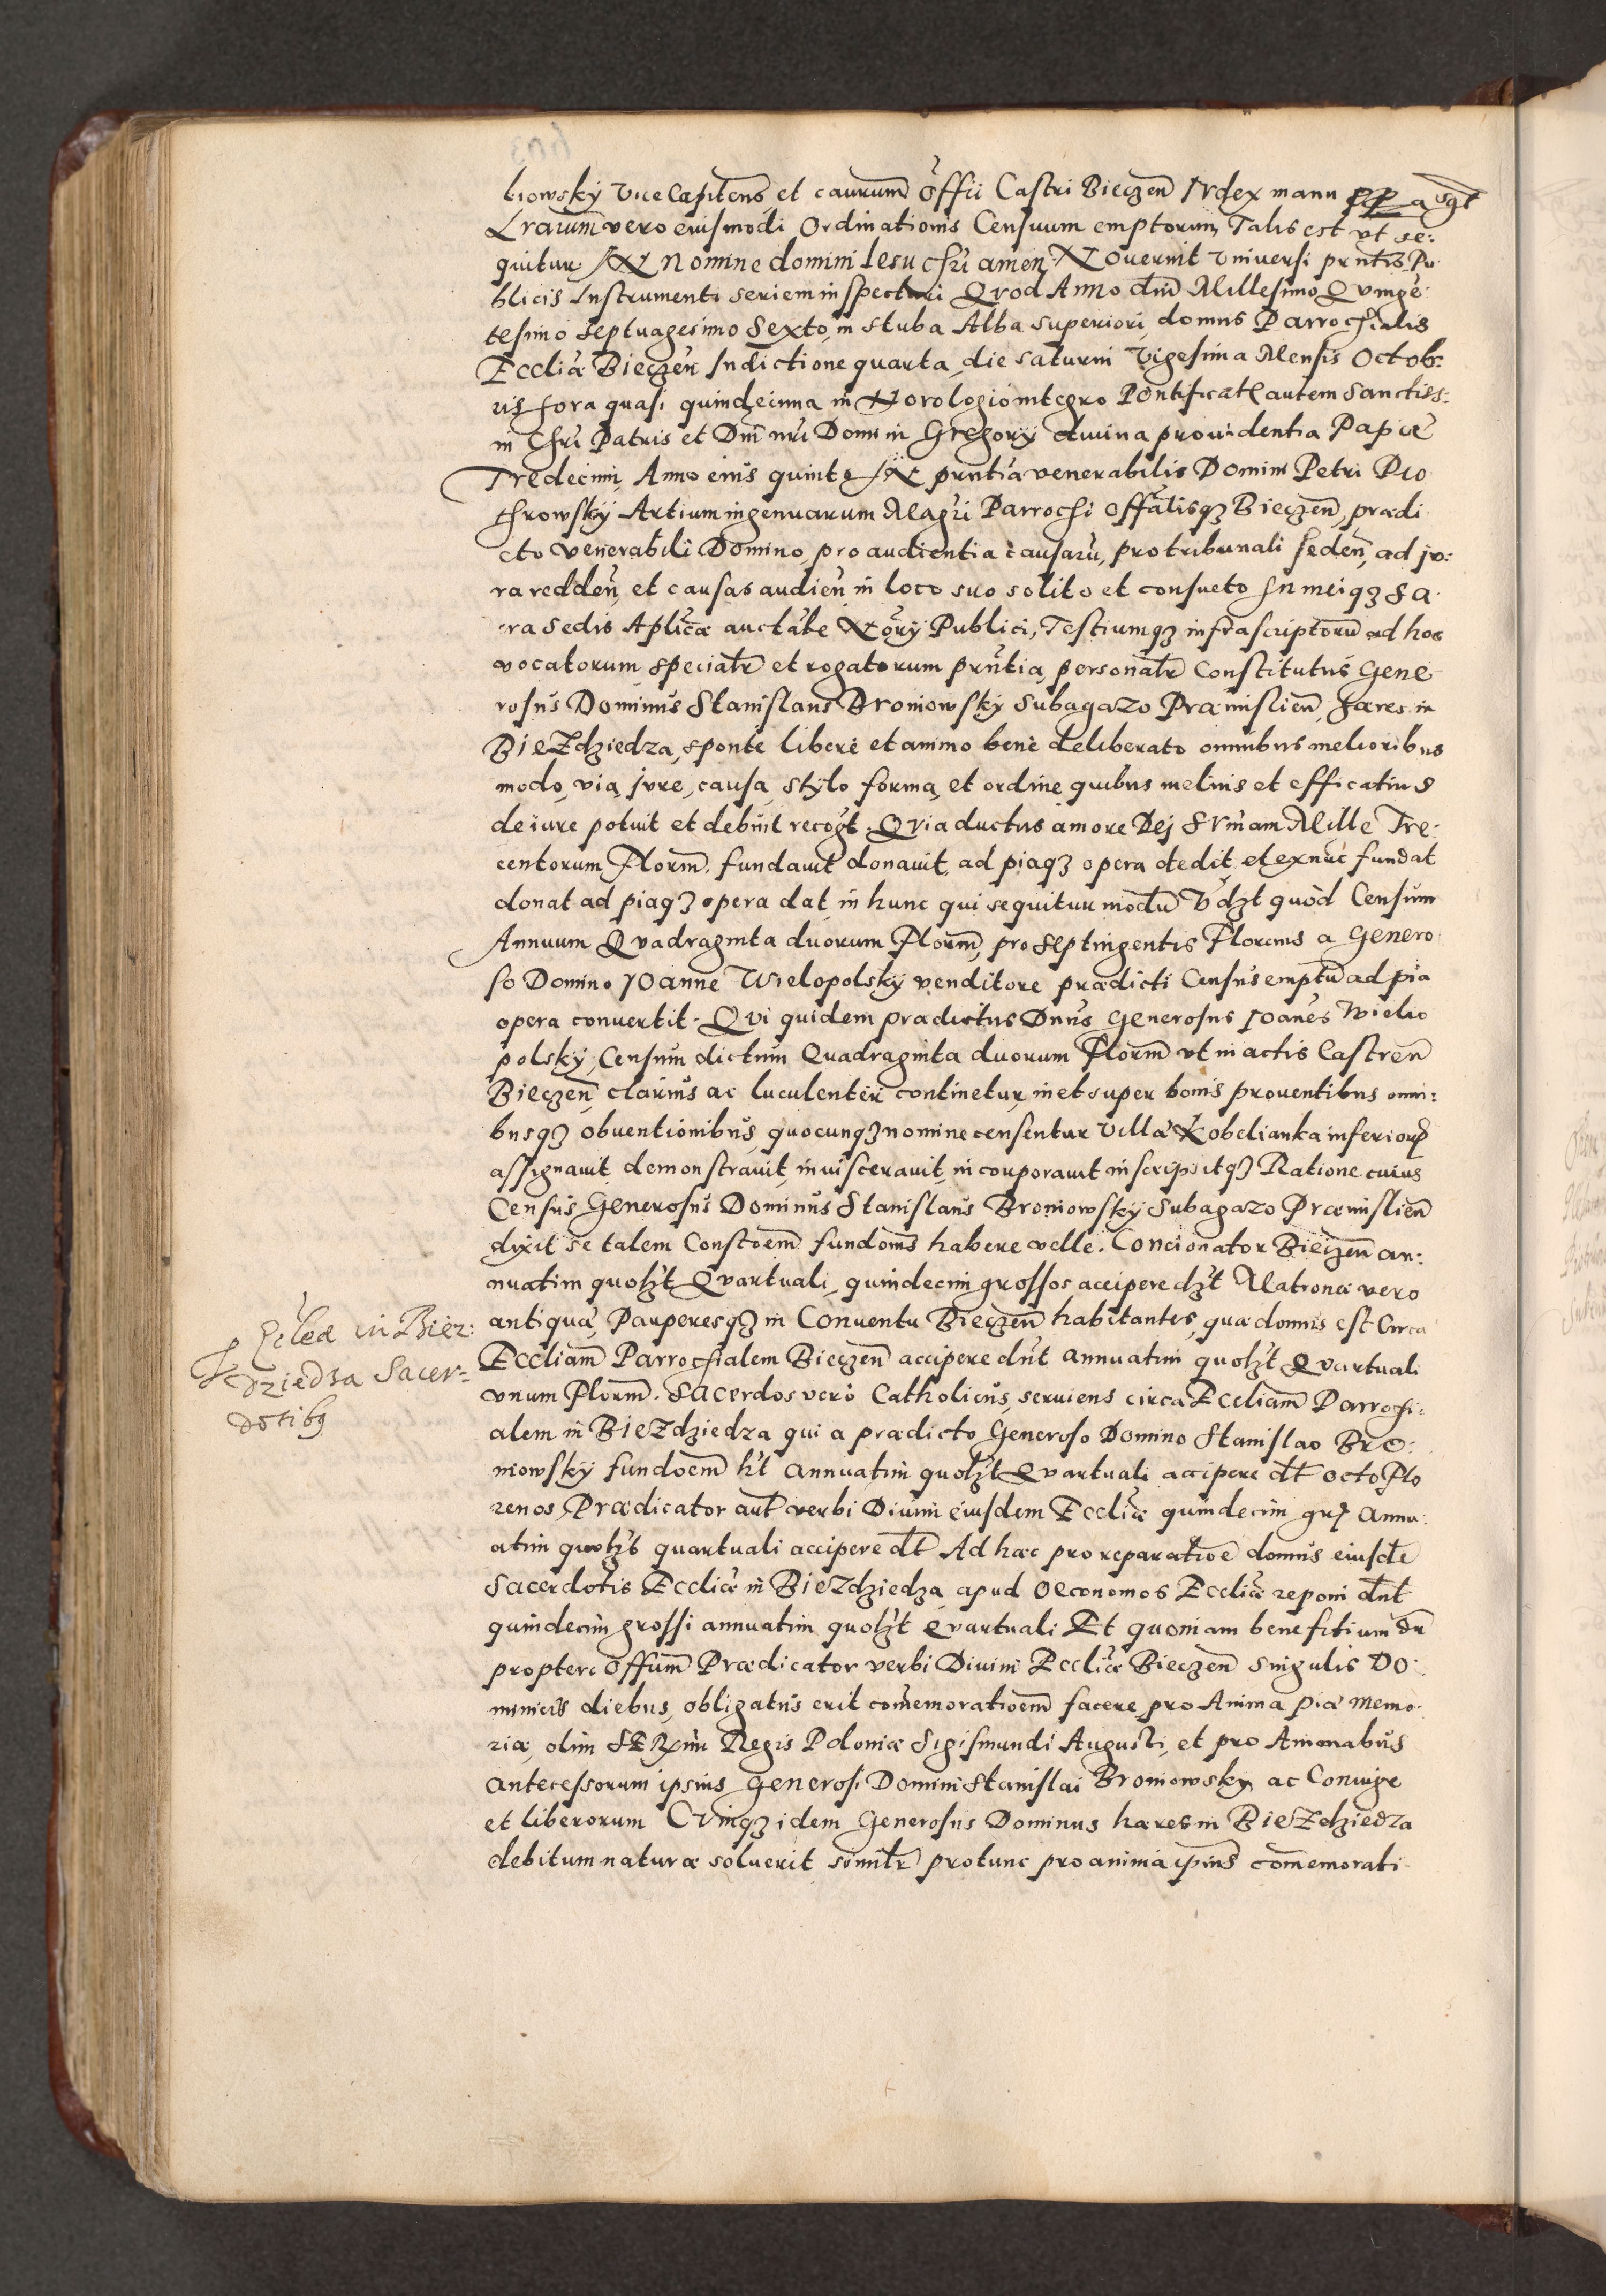 bowsky Vice Capitens et caurum offii Castri Bieczen Iudex manu pp a sgt
Lraium vero eiusmodi Ordinationis Censuum emptorum Talis est vt se:
quitur IN Nomine domini Iesu Chri amen. Noverint Vniversi prntis Pu
blicis Instrumenti seriem inspecturi Quod Anno dni Millesimo Quinge
tesimo septuagesimo Sexto, in stuba Alba superiori domus Parrochialis
Eccliæ Biegzen Indictione quarta, die saturni Vigesima Mensis Octob:
ris hora quasi quindecima in Horologio integro Pontificat autem Sanctiss:
in Chri Patris et Dni nri Domini Gregorij divina providentia Papæ
Tredecimi, Anno eius quinto IN prntia venerabilis Domini Petri Pro
chrowsky Artium ingenuarum Magri Parrochi offalisqz Biegzen, prædi
cto Venerabili Domino, pro audientia causaru, pro tribunali seden, ad ju:
ra redden, et causas audien, in loco suo solito et consueto In meiqz Sa
cra Sedis Aplicæ auctate Nory Publici, Testiumqz infrascriptoru ad hoc
vocatorum speciatr et rogatorum prntia, personatr Constitutus Gene
rosus Dominus Stanislaus Broniowsky Subagazo Præmislien, hæres in
BieZdziedza, sponte libere et animo bene deliberato omnibus melioribus
modo, via, jure, causa, stylo forma, et ordine quibus melius et efficatius
de iure potuit et debuit recogt. Quia ductus amore Dei Sumam Mille Tre:
centorum Florm. fundavit donavit, ad piaqz opera dedit, et exnuc fundat
donat ad piaqz opera dat, in hunc qui sequitur modu Vdzt quod Censum
Annuum Quadraginta duorum Florm, pro Septingentis Florenis a Genero
so Domino Ioanne Wielopolsky venditore prædicti Census emptu ad pia
opera convertit. Qui quidem prædictus Dnus Generosus Ioanes Wielio
polsky, Censum dictum Quadraginta duorum Florm vt in actis Castren
Biegzen, clarius ac luculenter continetur, in et super bonis proventibus omni:
busqz obventionibus, quocunqz nomine censentur Villæ Kobelianka inferiorp
assignavit, demonstravit, inviscervit, incorporavit inscripsitqz Ratione cuius
Census Generosus Dominus Stanislaus Broniowsky Subagazo Præmislien
dixit se talem Constoem fundonis habere velle. Concionator Bieczen an:
nuatim quolzt Quartuali, quindecim grossos accipere dzt Matronæ vero
antiquæ, Pauperesqz in Conventu Biegzen habitantes, quæ domus est Circa
Eccliam Parrochialem Biegzen accipere dnt annuatim quolzt Quartuali
vnum Florm. Sacerdos vero Catholicus, serviens circa Eccliam Parrochi:
alem in BieZdziedza qui a prædicto Generoso Domino Stanislao Bro:
niowsky fundoem ht annuatim quolzt Quartuali accipere dt octo Flo
renos Prædicator aut verbi Divini eiusdem Eccliæ quindecim grs annu:
atim quolzt quartuali accipere dt Ad hæc pro reparatioe domus eiusde
Sacerdotis Eccliæ in BieZdziedza, apud Oeconomos Eccliæ reponi dnt
quindecim grossi annuatim quolzt Quartuali Et quoniam benefitium dr
propter offum Prædicator verbi Divini Eccliæ Biegzen singulis Do:
minicis diebus, obligatus erit comemoratioem facere, pro Anima piæ memo:
riæ, olim Sermi Regis Poloniæ Sigismundi Augusti, et pro Animabus
Antecessorum ipsius Generosi Domini Stanislai Broniowsky ac Coniuge
et liberorum Cumqz idem Generosus Dominus hæres in BieZdziedza
debitum naturæ solverit, similr protunc pro anima ipius comemorati
in Biez:
dziedza Sacer=
dotibg